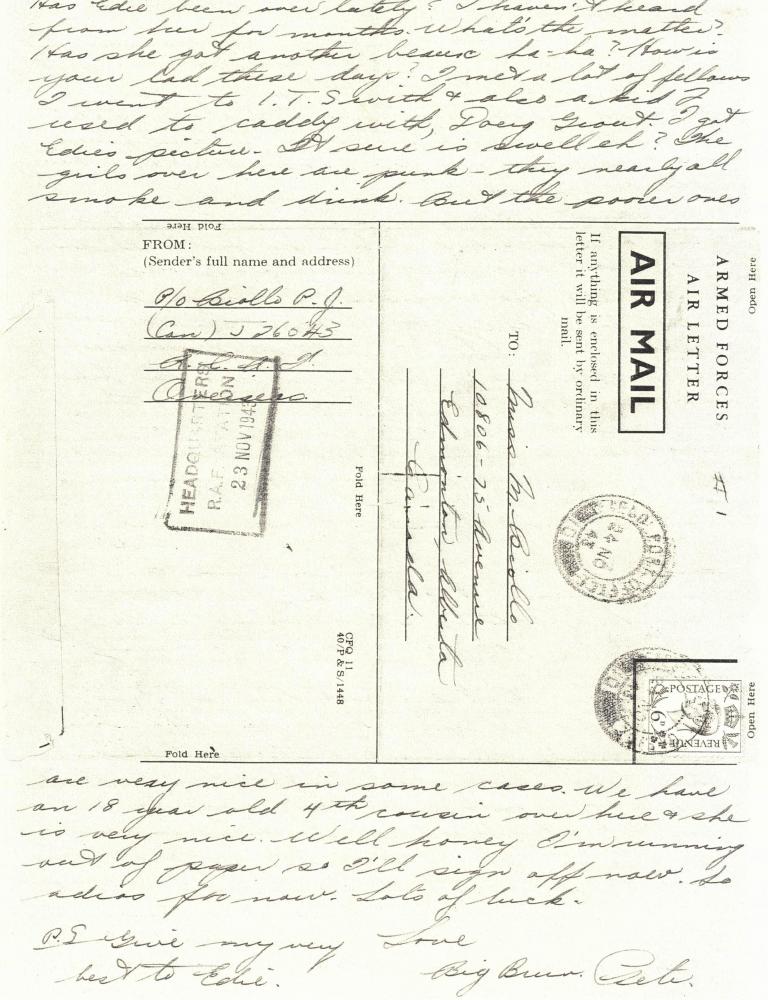 Has Edie been over lately? I haven't heard
from her for months. What's the matter?
Has she got another beau ha-ha? How is
your lad these days? I met a lot of fellows
I went to I.T.S with & also a kid I
used to caddy with, Doug Grout. I got
Edie's picture - It sure is swell eh? The
girls over here are punk - they nearly all
smoke and drink. But the poorer ones
Fold Here
FROM:
(Sender's full name and address)
P/O Biollo P. J.
(Can) J 26043
R. C. A. F.
Overseas
HEADQUARTERS
R.A.F. STATION
23 NOV 1943
Fold Here
CFQ 11
40/P & S/1448
Fold Here
Open Here
ARMED FORCES
AIR LETTER
# 1
AIR MAIL
If anything is enclosed in this
letter it will be sent by ordinary
mail.
TO:
Miss M. Biollo
10806 - 75 Avenue
Edmonton, Alberta
Canada.
FIELD POST OFFICE
24 NO
43
POSTAGE
6D
REVENUE
Open Here
are very nice in some cases. We have
an 18 year old 4th cousin over here & she
is very nice. Well honey I'm running
out of paper so I'll sign off now. So
adios for now. Lots of luck -
Love
Big Bruv. Pete.
P.S Give my very
best to Edie.